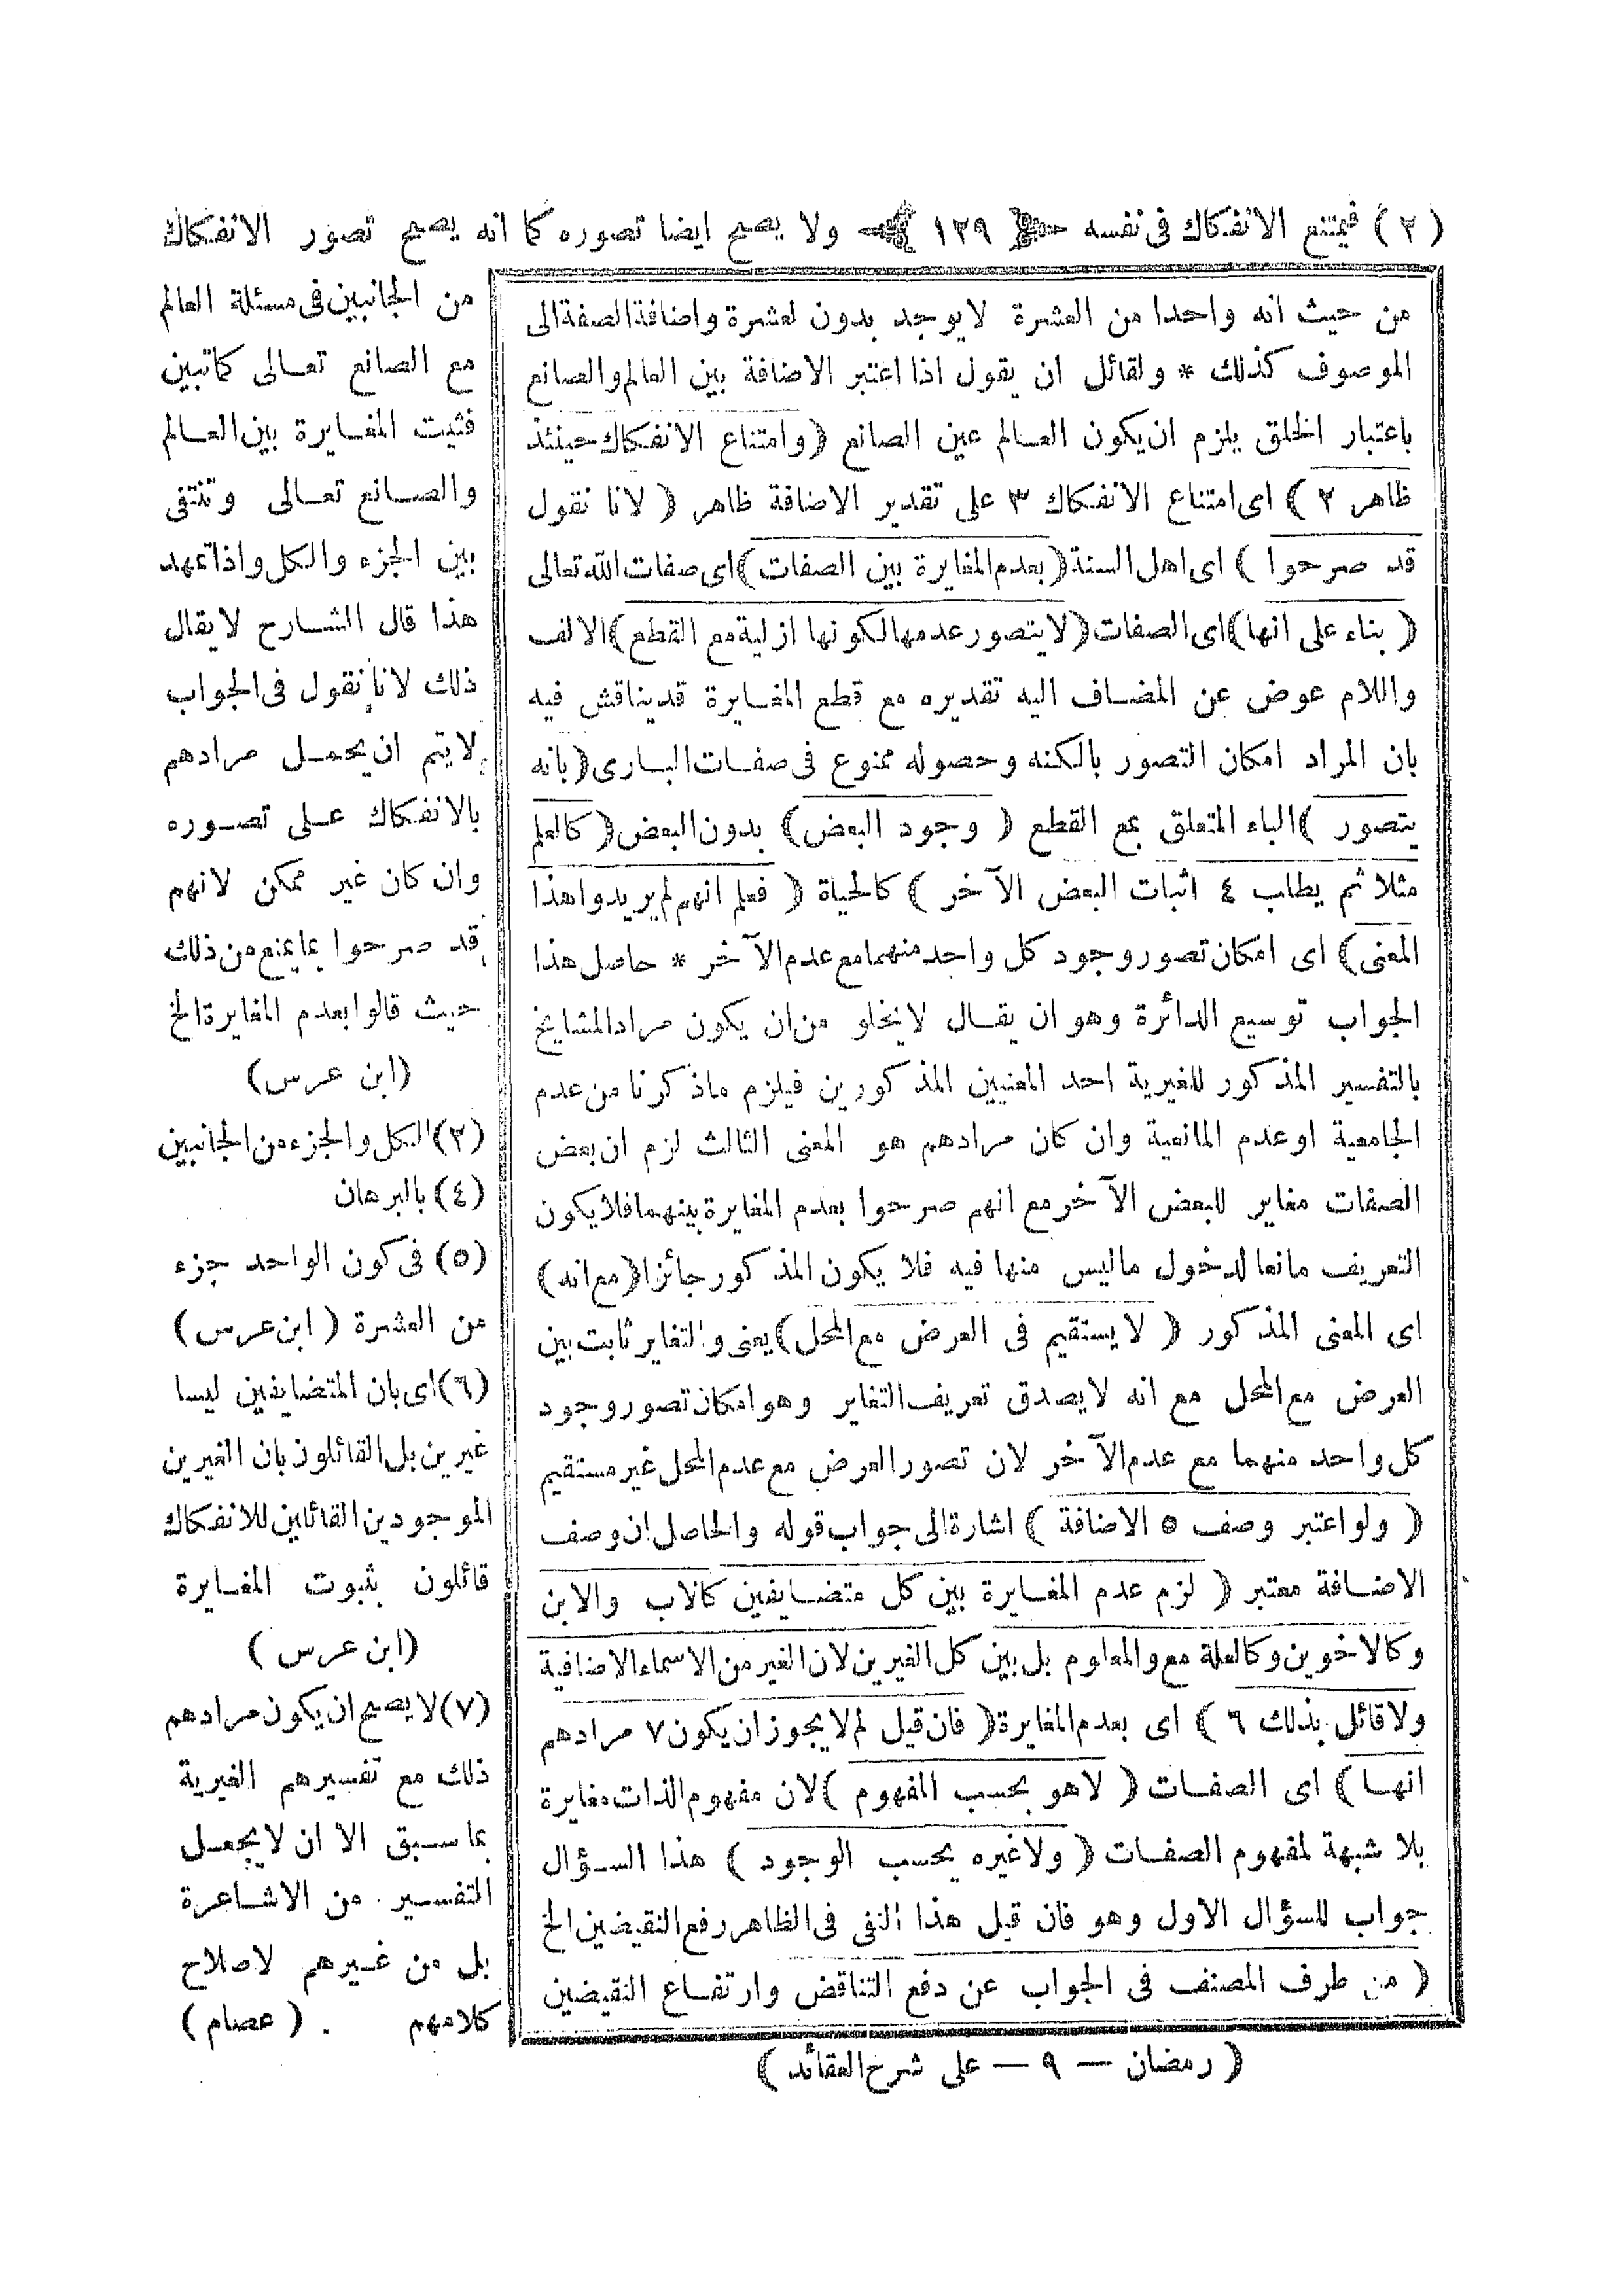 (٢) فيمتنع الانفكاك فى نفسه ١٢٩ ولا يصح ايضا تصوره كما انه يصح تصور الانفكاك
من حيث انه واحدا من العشرة لايوجد بدون لعشرة واضافة الصفة الى
الموصوف كذلك * ولقائل ان يقول اذا اعتبر الاضافة بين العالم والصانع
باعتبار الخلق يلزم ان يكون العالم عين الصانع (وامتناع الانفكاك حينئذ
ظاهر ٢) اى امتناع الانفكاك ٣ على تقدير الاضافة ظاهر (لانا نقول
قد صرحوا) اى اهل السنة (بعدم المغايرة بين الصفات) اى صفات الله تعالى
(بناء على انها) اى الصفات (لا يتصور عدمها لكونها ازلية مع القطع) الالف
واللام عوض عن المضاف اليه تقديره مع قطع المغايرة قد يناقش فيه
بان المراد امكان التصور بالكنه وحصوله ممنوع فى صفات البارى (بانه
يتصور) الباء المتعلق بمع القطع (وجود البعض) بدون البعض (كالعلم
مثلا ثم يطلب ٤ اثبات البعض الآخر) كالحياة (فعلم انهم لم يريدوا هذا
المعنى) اى امكان تصور وجود كل واحد منهما مع عدم الآخر * حاصل هذا
الجواب توسيع الدائرة وهو ان يقال لايخلو من ان يكون مراد المشايخ
بالتفسير المذكور للغيرية احد المعنيين المذكورين فيلزم ماذكرنا من عدم
الجامعية او عدم المانعية وان كان مرادهم هو المعنى الثالث لزم ان بعض
الصفات مغاير للبعض الآخر مع انهم صرحوا بعدم المغايرة بينهما فلا يكون
التعريف مانعا لدخول ماليس منها فيه فلا يكون المذكور جائزا (مع انه)
اى المعنى المذكور (لا يستقيم فى العرض مع المحل) يعنى والتغاير ثابت بين
العرض مع المحل مع انه لا يصدق تعريف التغاير وهو امكان تصور وجود
كل واحد منهما مع عدم الآخر لان تصور العرض مع عدم المحل غير مستقيم
(ولو اعتبر وصف ٥ الاضافة) اشارة الى جواب قوله والحاصل ان وصف
الاضافة معتبر (لزم عدم المغايرة بين كل متضايفين كالاب والابن
وكالاخوين وكالعلة مع والمعلوم بل بين كل الغيرين لان الغير من الاسماء الاضافية
ولا قائل بذلك ٦) اى بعدم المغايرة (فان قيل لم لا يجوز ان يكون ٧ مرادهم
انها) اى الصفات (لاهو بحسب المفهوم) لان مفهوم الذات مغايرة
بلا شبهة لمفهوم الصفات (ولا غيره بحسب الوجود) هذا السؤال
جواب للسؤال الاول وهو فان قيل هذا النفى فى الظاهر رفع النقيضين الخ
(من طرف المصنف فى الجواب عن دفع التناقض وارتفاع النقيضين
من الجانبين فى مسئلة العالم
مع الصانع تعالى كما تبين
فثبت المغايرة بين العالم
والصانع تعالى وتنتفى
بين الجزء والكل واذا تمهد
هذا قال الشارح لا يقال
ذلك لانا نقول فى الجواب
لا يتم ان يحمل مرادهم
بالانفكاك على تصوره
وان كان غير ممكن لانهم
قد صرحوا بما يمنع من ذلك
حيث قالوا بعدم المغايرة الخ
(ابن عرس)
(٢) الكل والجزء من الجانبين
(٤) بالبرهان
(٥) فى كون الواحد جزء
من العشرة (ابن عرس)
(٦) اى بان المتضايفين ليسا
غيرين بل القائلون بان الغيرين
الموجودين القائلين للانفكاك
قائلون بثبوت المغايرة
(ابن عرس)
(٧) لا يصح ان يكون مرادهم
ذلك مع تفسيرهم الغيرية
بما سبق الا ان لا يجعل
التفسير من الاشاعرة
بل من غيرهم لاصلاح
كلامهم . (عصام)
(رمضان — ٩ — على شرح العقائد)